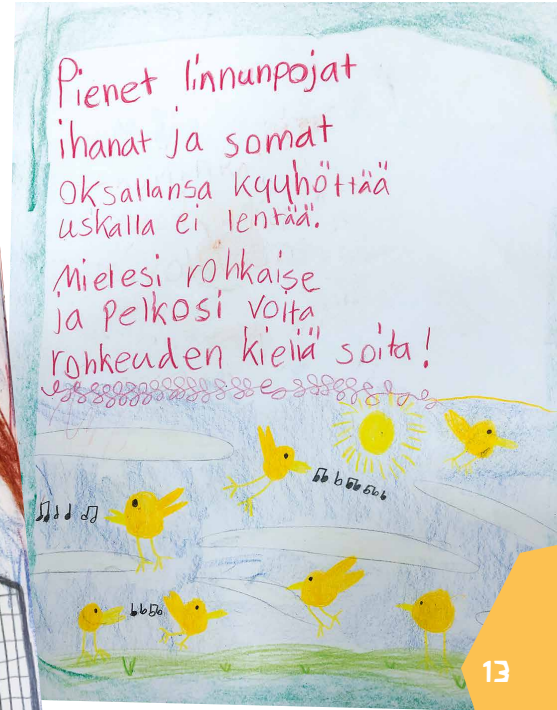 Pienet linnunpojat
ihanat ja somat
oksallansa kyyhöttää
uskalla ei lentää.
Mielesi rohkaise
ja pelkosi voita
rohkeuden kieliä soita!
13